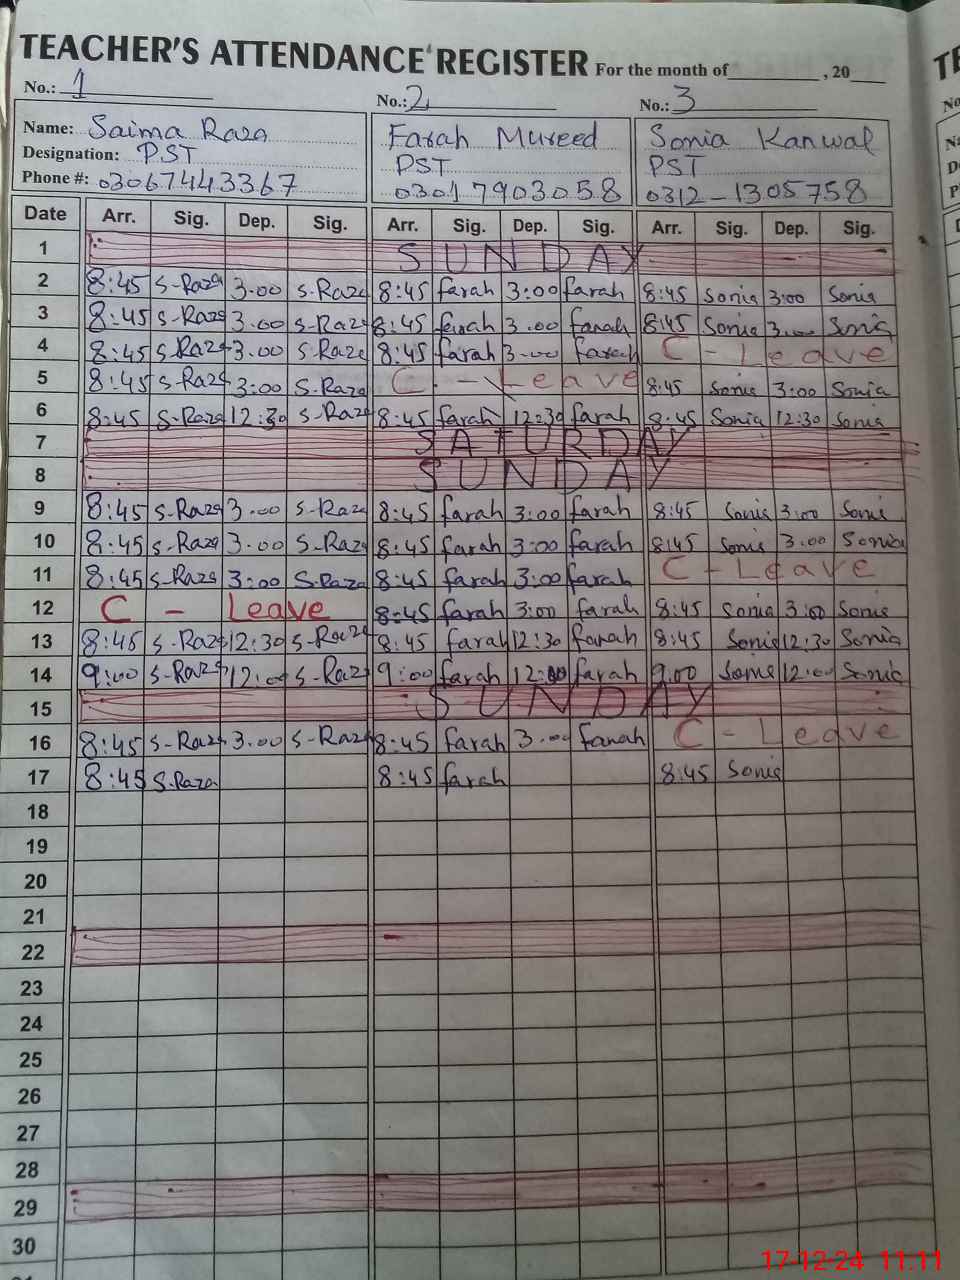 TEACHER'S ATTENDANCE REGISTER For the month of , 20
No.: 1 No.: 2 No.: 3
Name: Saima Raza Farah Mureed Sonia Kanwal
Designation: PST PST PST
Phone #: 03067443367 0301 7903058 0312-1305758
Date Arr. Sig. Dep. Sig. Arr. Sig. Dep. Sig. Arr. Sig. Dep. Sig.
1 SUNDAY
2 8:45 S-Raza 3.00 S.Raza 8:45 farah 3:00 farah 8:45 Sonia 3:00 Sonia
3 8:45 S-Raza 3.00 S-Raza 8:45 farah 3.00 farah 8:45 Sonia 3.00 Sonia
4 8:45 S-Raza 3.00 S-Raza 8:45 farah 3.00 farah C - Leave
5 8:45 S-Raza 3:00 S.Raza C - Leave 8:45 Sonia 3:00 Sonia
6 8:45 S-Raza 12:30 S-Raza 8:45 farah 12:30 farah 8:45 Sonia 12:30 Sonia
7 SATURDAY
8 SUNDAY
9 8:45 S-Raza 3.00 S-Raza 8:45 farah 3:00 farah 8:45 Sonia 3:00 Sonia
10 8:45 S-Raza 3.00 S-Raza 8:45 farah 3:00 farah 8:45 Sonia 3.00 Sonia
11 8:45 S-Raza 3:00 S.Raza 8:45 farah 3:00 farah C - Leave
12 C - Leave 8:45 farah 3:00 farah 8:45 Sonia 3:00 Sonia
13 8:45 S-Raza 12:30 S-Raza 8:45 farah 12:30 farah 8:45 Sonia 12:30 Sonia
14 9:00 S-Raza 12:00 S-Raza 9:00 farah 12:00 farah 9:00 Sonia 12:00 Sonia
15 SUNDAY
16 8:45 S-Raza 3.00 S-Raza 8:45 farah 3.00 farah C - Leave
17 8:45 S.Raza 8:45 farah 8:45 Sonia
18
19
20
21
22
23
24
25
26
27
28
29
30
17-12-24 11:11